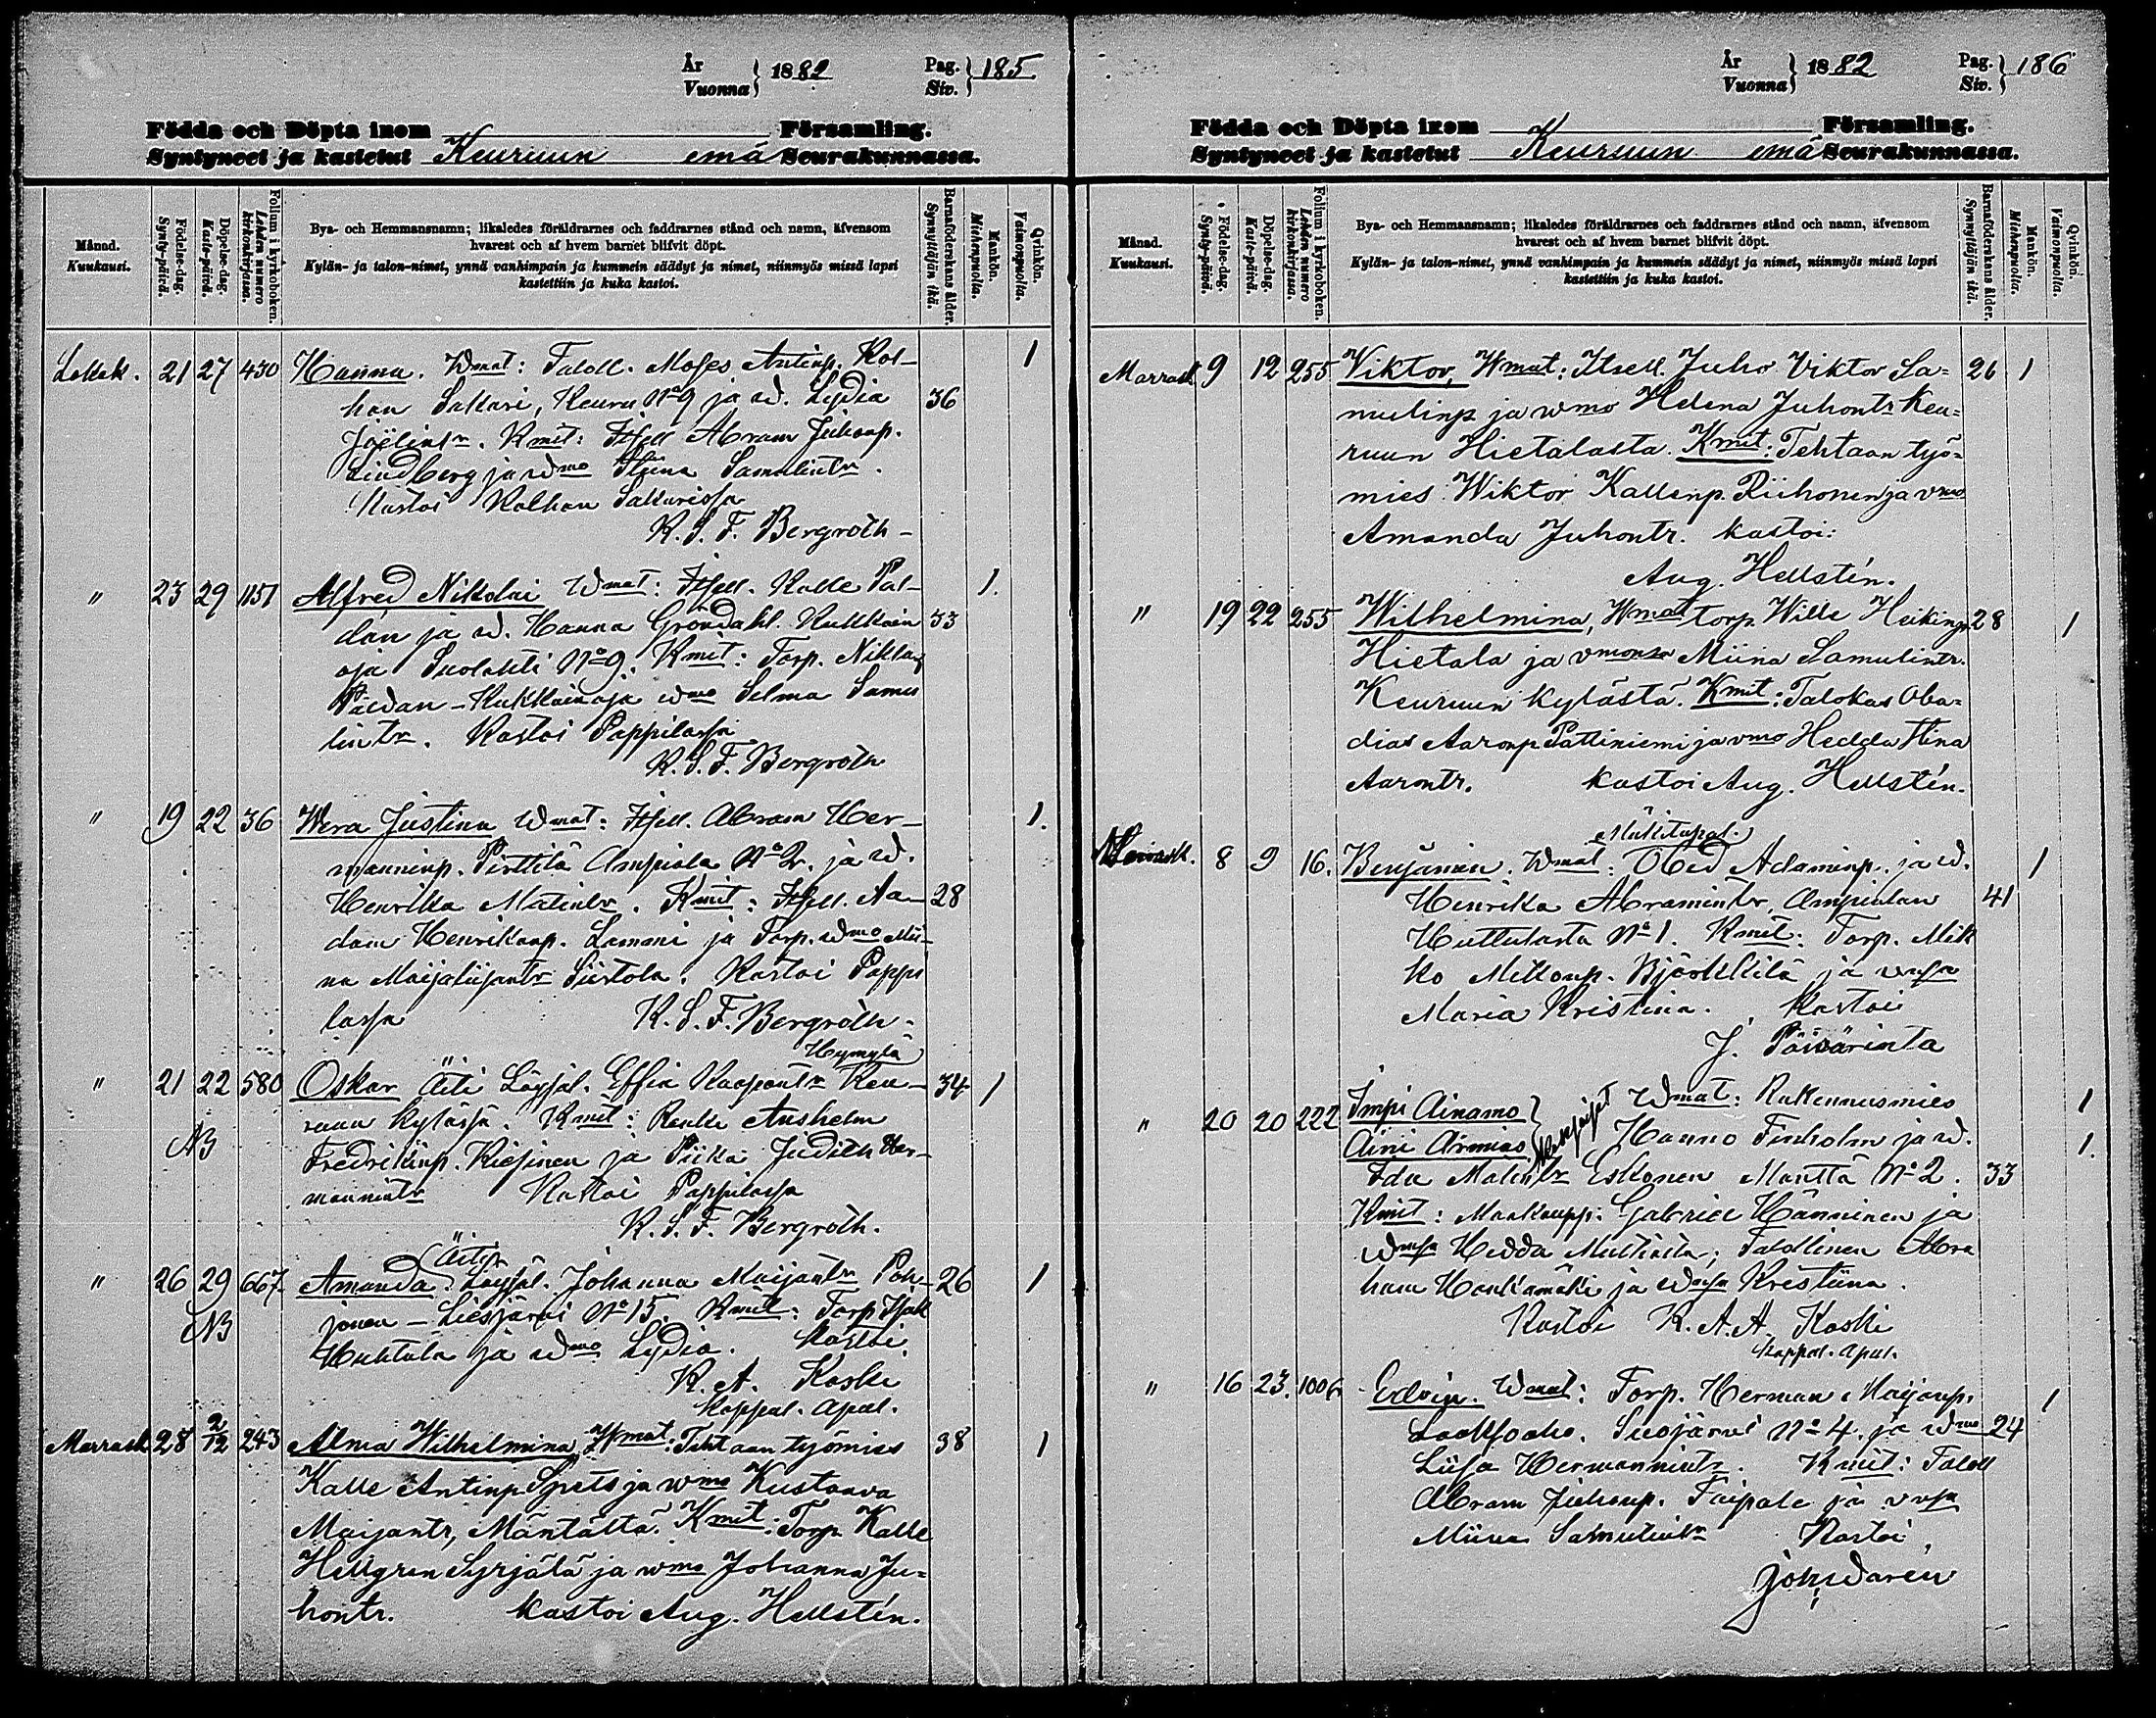 År
Vuonna } 1882
Pag.
Siv. } 185
Födda och Döpta inom Församling.
Syntyneet ja kastetut Keuruun emä Seurakunnassa.
Månad.
Kuukausi.
Födelse-dag.
Synty-päivä.
Döpelse-dag.
Kaste-päivä.
Folium i kyrkoboken.
Lehden numero kirkonkirjassa.
Bya- och Hemmansnamn; likaledes föräldrarnes och faddrarnes stånd och namn, äfvensom
hvarest och af hvem barnet blifvit döpt.
Kylän- ja talon-nimet, ynnä vanhimpain ja kummein säädyt ja nimet, niinmyös missä lapsi
kastettiin ja kuka kastoi.
Barnaföderskans ålder.
Synnyttäjän ikä.
Mankön.
Miehenpuolia.
Qvinkön.
Vaimonpuolia.
Lokak. 21 27 430 Hanna. Wmat: Taloll. Moses Antinp. Kol- 1
han Sakari, Keuru No 9 ja w. Lydia 36
Joelintr. Kmit: Itsell Abram Juhonp.
Lindberg ja wmo Stiina Samulintr.
Kastoi Kolhon Sakarissa
K. S. F. Bergroth-
" 23 29 1157 Alfred Nikolai Wmat: Itsell. Kalle Pal- 1.
dan ja w. Hanna Gröndahl. Kukkain 33
oja Suolahti No 9. Kmit: Torp. Niklas
Paldan - Kukkainoja wmo Selma Samu
lintr. Kastoi Pappilassa
K. S. F. Bergroth
" 19 22 36 Wera Justina Wmat: Itsell. Abram Her- 1.
manninp. Pirttilä Ampiala No 2. ja w.
Henrika Matintr. Kmit: Itsell. Aa- 28
dam Henrikinp. Lammi ja Torp. wmo Mii-
na Maijaliijantr Siistola. Kastoi Pappi
lassa K. S. F. Bergroth-
Hymylä
" 21 22 580 Oskar Äiti Löysäl. Effia Kaapontr Keu- 34 1
ruun kylässä. Kmit: Renki Anshelm
NB Fredrikinp. Kiesinen ja Piika Judith Her-
manintr Kastoi Pappilassa
K. S. F. Bergroth.
Äiti
" 26 29 667 Amanda. Löysäl. Johanna Maijantr Poh- 26 1
NB jonen - Liesjärvi No 15. Kmit: Torp Isak
Huhtala ja wmo Lydia. Kastoi
K. A. Koski
Kappal. apul.
Marrask 28 2/12 243 Alma Wilhelmina, Wmat: Tehtaan työmies 38 1
Kalle Antinp. Spets ja wmo Kustaava
Maijantr, Mäntältä. Kmit: Torp. Kalle
Hellgren Syrjälä ja wmo Johanna Ju=
hontr. kastoi Aug. Hellstén.
År
Vuonna } 1882
Pag.
Siv. } 186
Födda och Döpta inom Församling.
Syntyneet ja kastetut Keuruun emä Seurakunnassa.
Månad.
Kuukausi.
Födelse-dag.
Synty-päivä.
Döpelse-dag.
Kaste-päivä.
Folium i kyrkoboken.
Lehden numero kirkonkirjassa.
Bya- och Hemmansnamn; likaledes föräldrarnes och faddrarnes stånd och namn, äfvensom
hvarest och af hvem barnet blifvit döpt.
Kylän- ja talon-nimet, ynnä vanhimpain ja kummein säädyt ja nimet, niinmyös missä lapsi
kastettiin ja kuka kastoi.
Barnaföderskans ålder.
Synnyttäjän ikä.
Mankön.
Miehenpuolia.
Qvinkön.
Vaimonpuolia.
Marrask 9 12 255 Viktor, Wmat: Itsell. Juho Viktor Sa= 26 1
mulinp ja wmo Helena Juhontr Keu=
ruun Hietalasta. Kmit: Tehtaan työ=
mies Wiktor Kallenp. Riihonen ja vmo
Amanda Juhontr. kastoi:
Aug. Hellstén.
" 19 22 255 Wilhelmina, Wmat torp. Wille Heikinp 28 1
Hietala ja vmonsa Miina Samulintr.
Keuruun kylästä. Kmit: Talokas Oba=
dias Aaronp Pattiniemi ja vmo Hedda Stina
Aarontr. kastoi Aug. Hellstén.
Mäkitupal.
Marrask. 8 9 16. Benjamin. Wmat: Obed Adaminp. ja w. 1
Henrika Abramintr, Ampialan 41
Huttulasta No 1. Kmit: Torp. Mik
ko Mikonp. Björkkilä ja
Maria Kristina. Kastoi
J. Päivärinta
" 20 20 222 Impi Ainamo } Wmat: Rakennusmies 1
Aini Armias Hanno Finholm ja w. 1.
Ida Matintr Eskonen Mänttä No 2. 33
Kmit: Maakaupp. Gabriel Hänninen ja
Hedda Multiaita; Talollinen Abra
ham Honkamäki ja Kristiina.
Kastoi K. A. A. Koski
Kappal. apul.
" 16 23 1006 Edvin. Wmat: Torp. Herman Maijanp. 1
Suojärvi No 4. ja wmo 24
Liisa Hermannintr. Kmit: Taloll
Abram Juhonp. Taipale ja
Miina Samulintr Kastoi
Joh. Daren